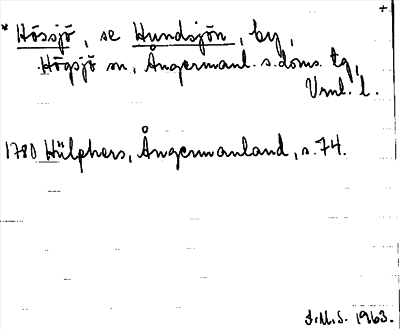 * Hössjö, se Hundsjön, by,
Högsjö sn, Ångermanl. s. doms. tg,
Vrnl. l.
1780 Hülphers, Ångermanland, s. 74.
J.M.S. 1963.